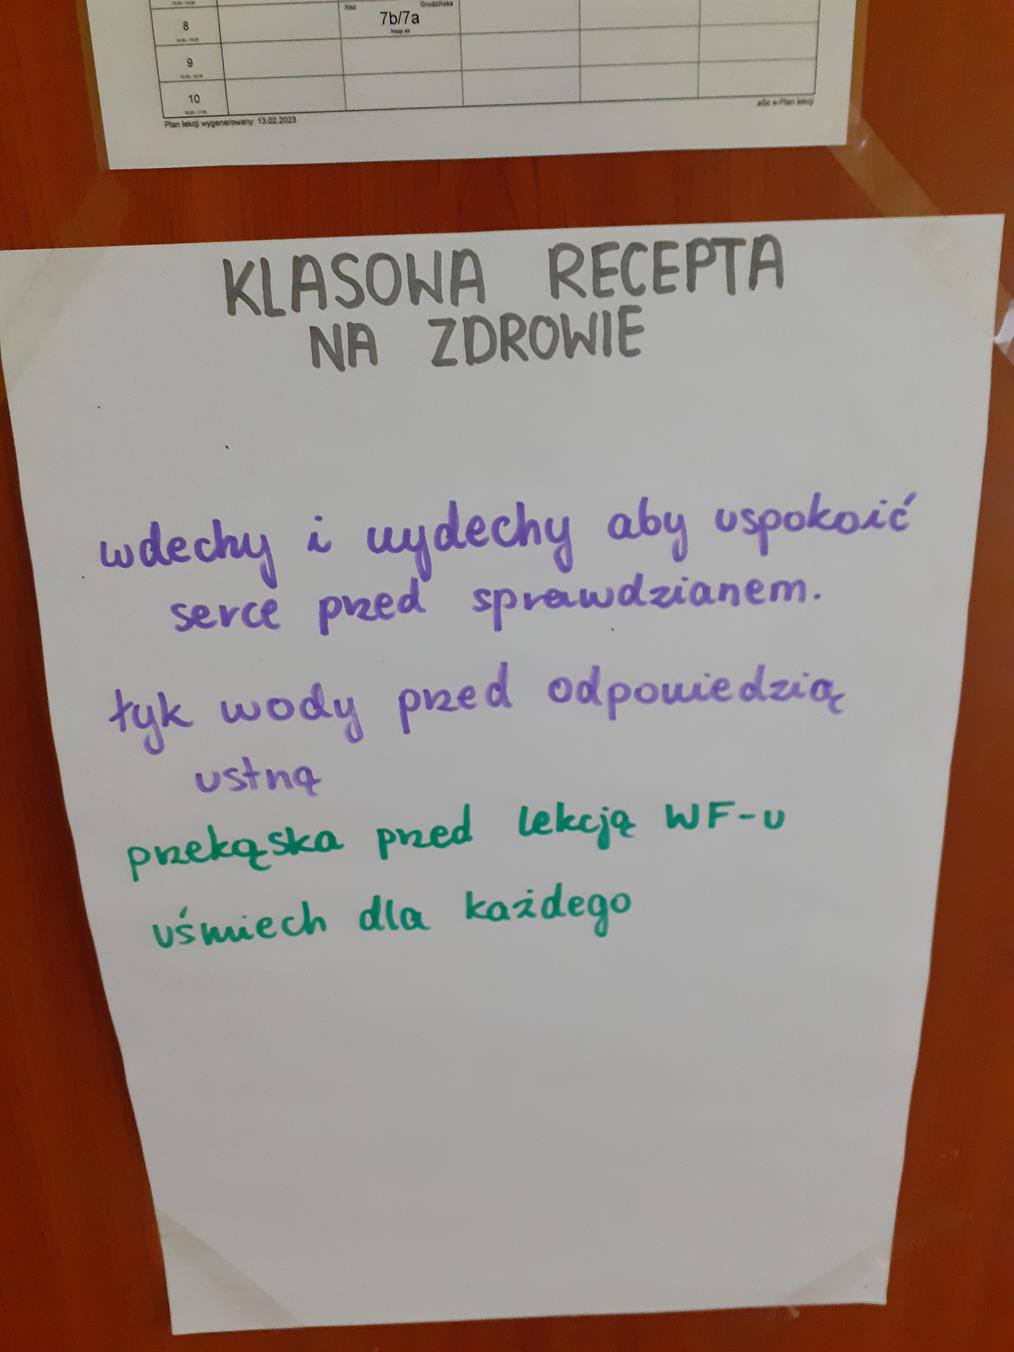 8
7b/7a
Grudzińska
9
10
Plan lekcji wygenerowany: 13.02.2023
aSc e-Plan lekcji
KLASOWA RECEPTA
NA ZDROWIE
wdechy i wydechy aby uspokoić
serce przed sprawdzianem.
łyk wody przed odpowiedzią
ustną
przekąska przed lekcją WF-u
uśmiech dla każdego